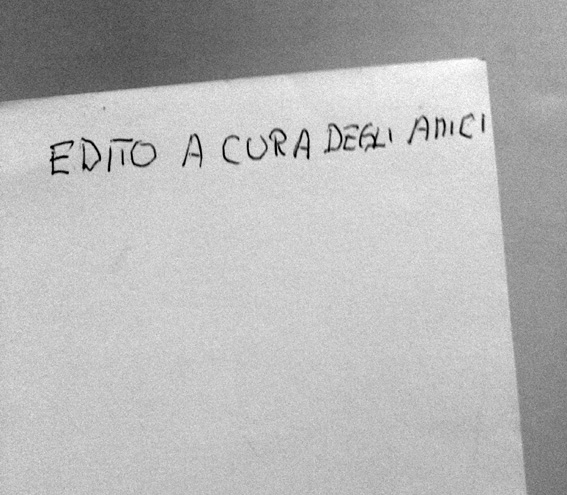 EDITO A CURA DEGLI AMICI